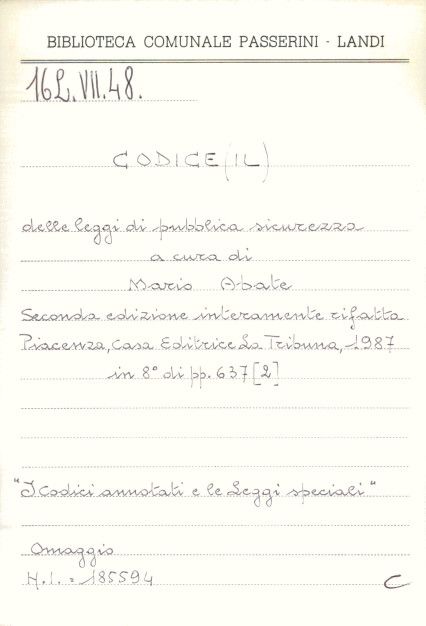 BIBLIOTECA COMUNALE PASSERINI - LANDI
16L.VII.48.
CODICE (IL)
delle leggi di pubblica sicurezza
a cura di
Mario Abate
Seconda edizione interamente rifatta
Piacenza, Casa Editrice La Tribuna, 1987
in 8° di pp. 637 [2]
"I Codici annotati e le Leggi speciali"
Omaggio
N.I. = 185594
C